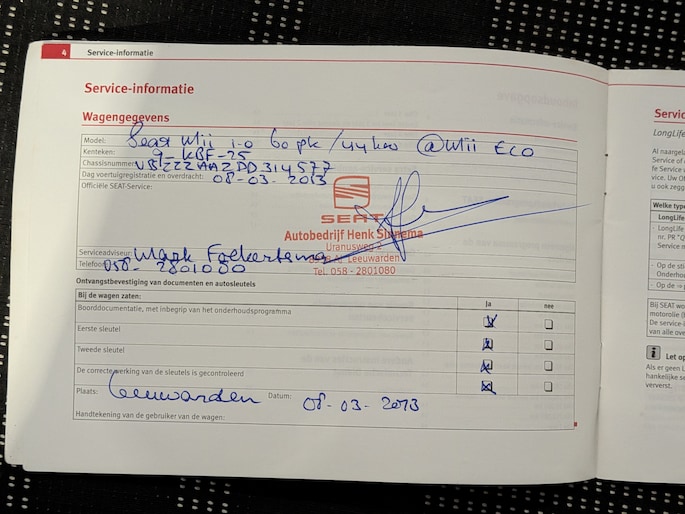 4 Service-informatie
Service-informatie
Wagengegevens
Model: Seat Mii 1.0 60 pk / 44 kw @Mii ECO
Kenteken: 9-KBF-25
Chassisnummer: VSZZZAAZDD314577
Dag voertuigregistratie en overdracht: 08-03-2013
Officiële SEAT-Service:
SEAT
Autobedrijf Henk
Uranusweg 2
Leeuwarden
Tel. 058 - 2801080
Serviceadviseur: Mark Folkertsma
058- 2801000
Ontvangstbevestiging van documenten en autosleutels
Bij de wagen zaten: Ja nee
Boorddocumentatie, met inbegrip van het onderhoudsprogramma
Eerste sleutel
Tweede sleutel
De correcte werking van de sleutels is gecontroleerd
Plaats: Leeuwarden Datum: 08-03-2013
Handtekening van de gebruiker van de wagen:
Servic
LongLife
Al naargela
Service of
fe Service
vice. Uw O
u ook zegg
Welke type
LongLife
nr. PR "Q
Service n
Op de sti
Onderho
Op de
Bij SEAT wo
motorolie (
De service i
van alle over
i Let op
Als er geen L
hankelijke se
ververst.